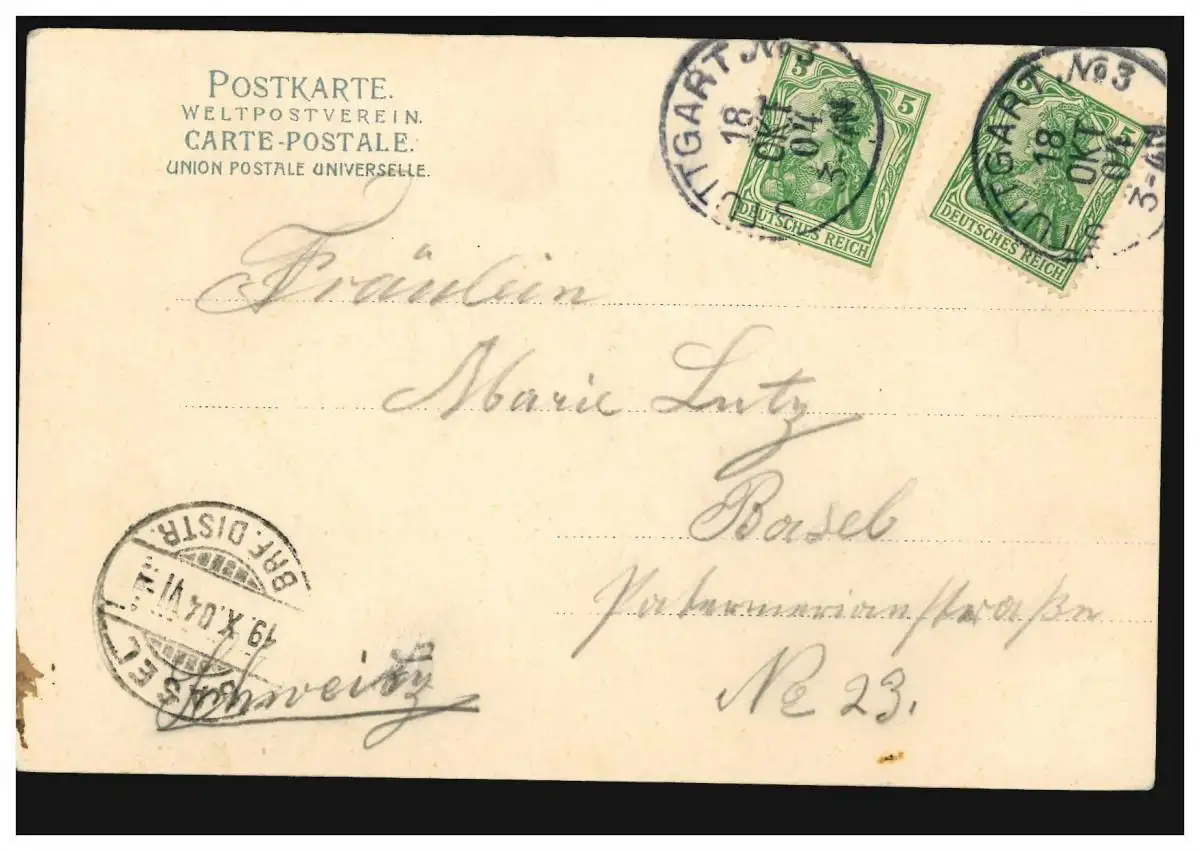 POSTKARTE.
WELTPOSTVEREIN.
CARTE-POSTALE.
UNION POSTALE UNIVERSELLE.
STUTTGART No 3
18
OKT
04
3-4N
5 5
DEUTSCHES REICH
STUTTGART No 3
18
OKT
04
3-4N
5 5
DEUTSCHES REICH
Fräulein
Marie Lutz
Basel
Patermerianstraße
No 23.
BRF. DISTR.
19 X.04 VI
BASEL
Schweitz